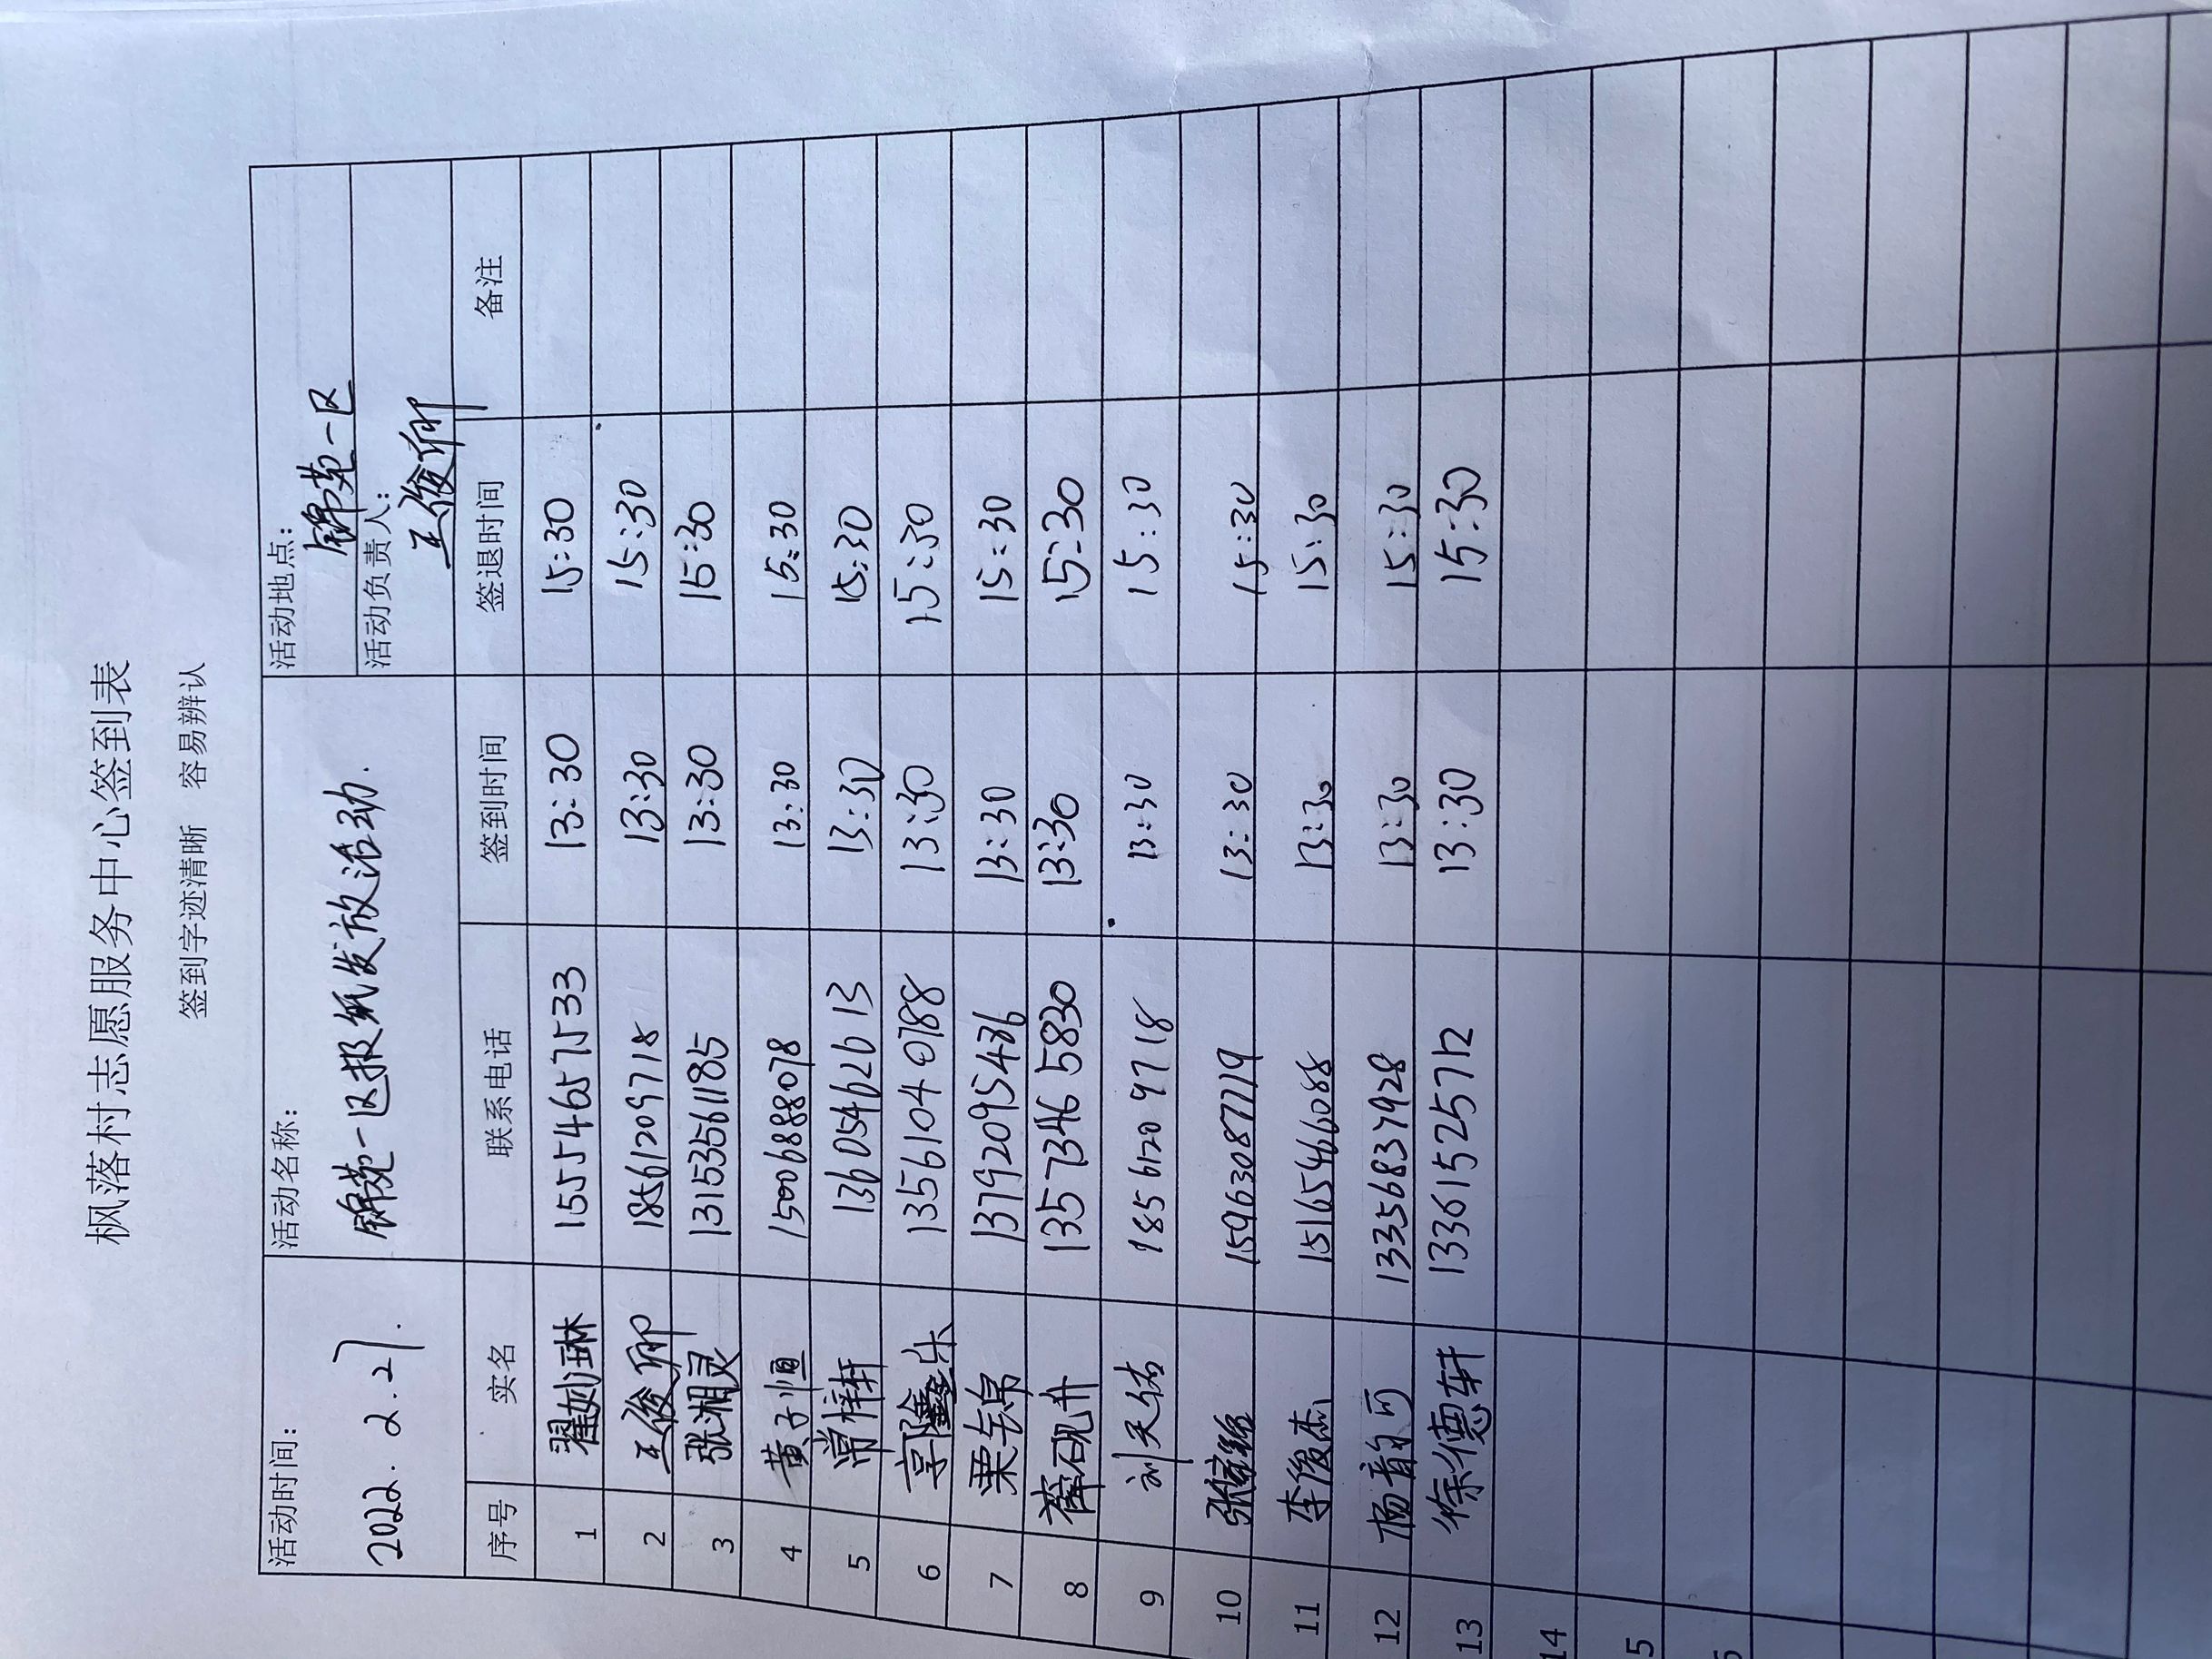 枫落村志愿服务中心签到表
签到字迹清晰 容易辨认
活动时间: 活动名称: 活动地点:
2022.2.27. 锦苑一区报纸发放活动. 锦苑一区
活动负责人:
王俊
序号 实名 联系电话 签到时间 签退时间 备注
1 翟妙琳 15554657533 13:30 15:30
2 王俊 18561209718 13:30 15:30
3 张湘灵 13153561185 13:30 15:30
4 黄子恒 15006888078 13:30 15:30
5 常梓轩 13605462613 13:30 15:30
6 郭鑫乐 13561040788 13:30 15:30
7 栗锦 13792095436 13:30 15:30
8 薛砚升 13573465830 13:30 15:30
9 刘天佑 18561209718 13:30 15:30
10 张 15963087719 13:30 15:30
11 李俊杰 15165466088 13:30 15:30
12 杨韵可 13356837928 13:30 15:30
13 徐德轩 13361525712 13:30 15:30
14
5